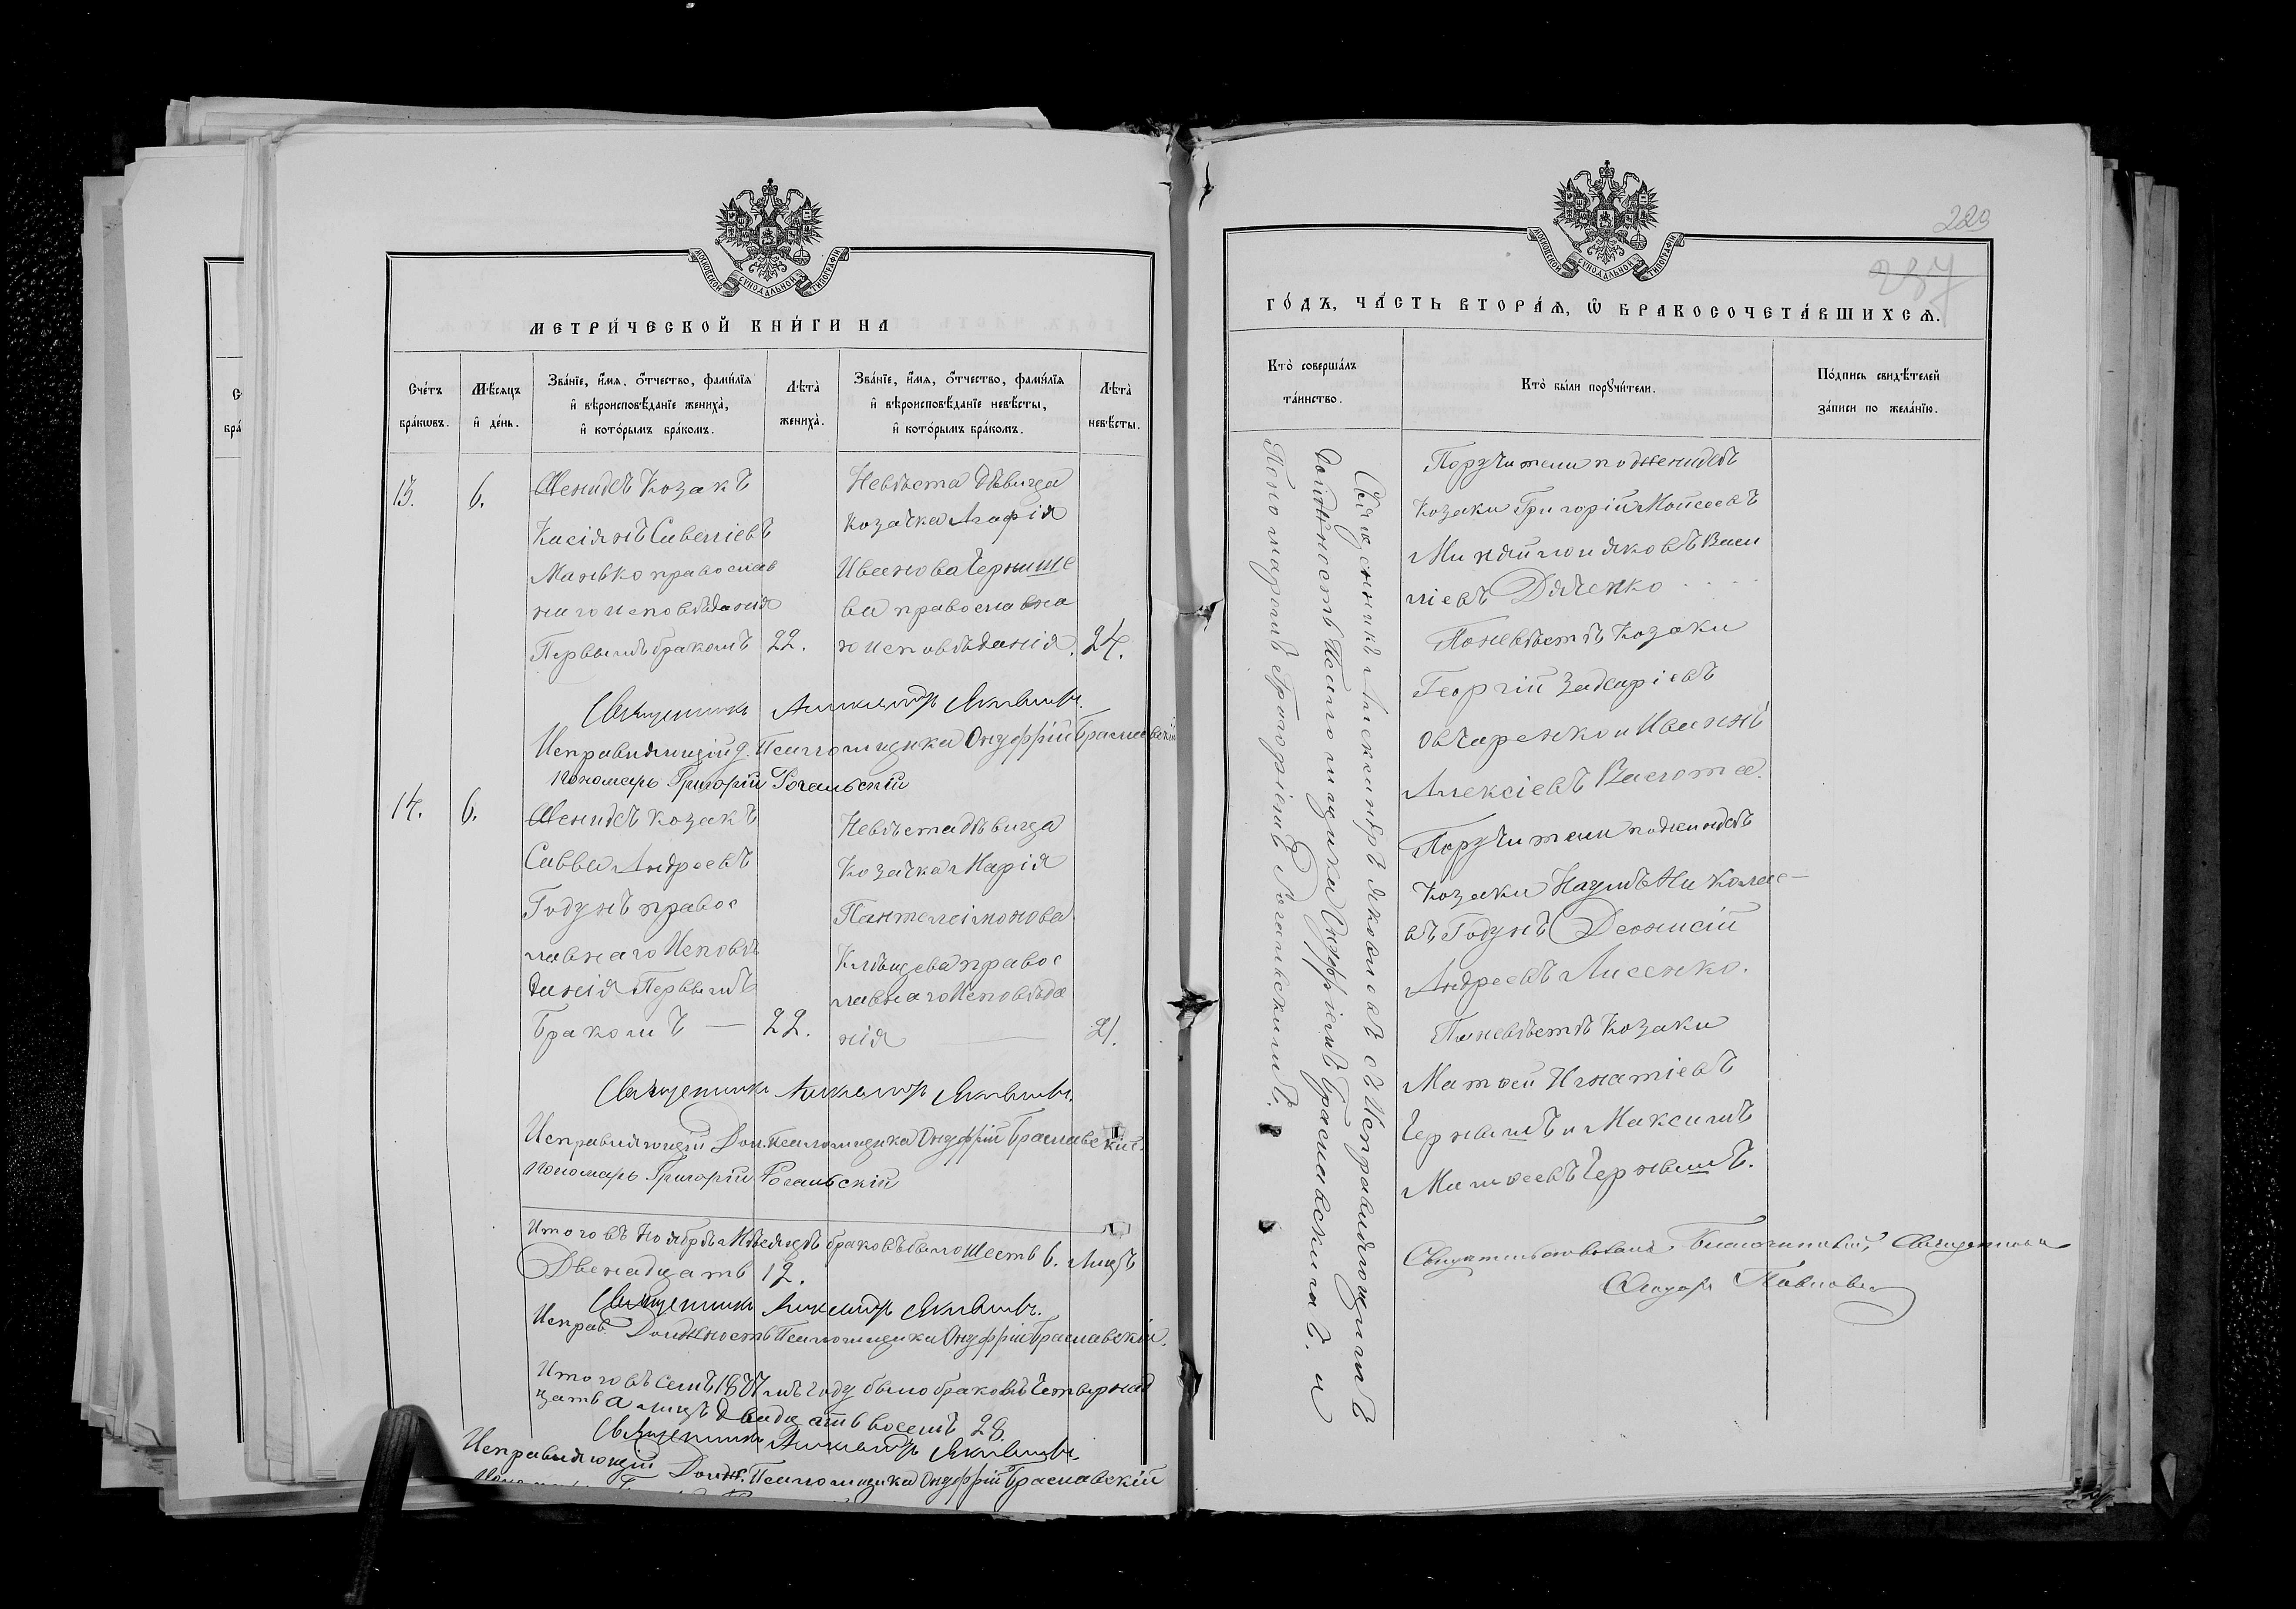 МОСКОВСКОЙ СУНОДАЛЬНОЙ ТИПОГРАФІИ
МЕТРИ́ЧЕСКОЙ КНИ́ГИ НА
Сче́тъ бра́кѡвъ.
Мѣ́сяцъ и҆ де́нь.
Зва́нїе, и҆́мя, ѻ҆́тчество, фами́лїя и҆ вѣроисповѣ́данїе жениха̀, и҆ кото́рымъ бра́комъ.
Лѣта̀ жениха̀.
Зва́нїе, и҆́мя, ѻ҆́тчество, фами́лїя и҆ вѣроисповѣ́данїе невѣ́сты, и҆ кото́рымъ бра́комъ.
Лѣта̀ невѣ́сты.
13.
6.
Женихъ Козакъ
Касіянъ Савеліевъ
Манько православ
наго исповѣданія
Первымъ бракомъ
22.
Невѣста дѣвица
козачка Агафія
Иванова Черныше
ва православна
го исповѣданія.
24.
Священникъ Александръ Яковлевъ.
Исправляющій д. Псаломщика Онуфрій Браславскій
Пономарь Григорій Рогальскій
14.
6.
Женихъ козакъ
Савва Андреевъ
Годунъ правос
лавнаго Исповѣ
данія Первымъ
Бракомъ —
22.
Невѣста дѣвица
Козачка Марія
Пантелеімонова
Клѣщева правос
лавнаго Исповѣда
нія
21.
Священникъ Александръ Яковлевъ.
Исправляющій Дол. Псаломщика Онуфрій Браславскій.
Пономарь Григорій Рогальскій
Итого въ Ноябрѣ Мѣсяцѣ браковъ было шесть 6. Лицъ
Двенадцать 12.
Священникъ Александръ Яковлевъ.
Исправ. Должность Псаломщика Онуфрій Браславскій.
Итого въ семъ 1877 мъ году было браковъ Четырнад
цать а лицъ двадцать восемъ 28.
Священникъ Александръ Яковлевъ.
Исправляющій Долж. Псаломщика Онуфрій Браславскій
229
287
МОСКОВСКОЙ СУНОДАЛЬНОЙ ТИПОГРАФІИ
ГО́ДЪ, ЧА́СТЬ ВТОРА́Я, Ѽ БРАКОСОЧЕТА́ВШИХСЯ.
Кто̀ соверша́лъ та́инство.
Кто̀ бы́ли порꙋчи́тели.
По́дпись свидѣ́телей за́писи по жела́нїю.
Священникъ Александръ Яковлевъ съ Исправляющимъ
должность Псаломщика Онуфріемъ Браславскимъ. и
Пономаремъ Григоріемъ Рогальскимъ.
Поручители по женихѣ
Козаки Григорій Моисеевъ
лиевъ Дяченко
По невѣстѣ Козаки
Георгій Захаріевъ
Овчаренко и Иванъ
Алексіевъ
Поручители по женихѣ
Козаки Наумъ Николае—
въ Годунъ Деонисій
Андреевъ Лисенко.
По невѣстѣ Козаки
Матѳей Игнатіевъ
Чернышъ и Максимъ
Матѳеевъ Чернышъ.
Свидѣтельствовалъ Благочинный, Священникъ
Павловъ